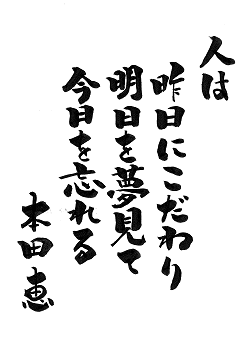 人は
昨日にこだわり
明日を夢見て
今日を忘れる
本田恵